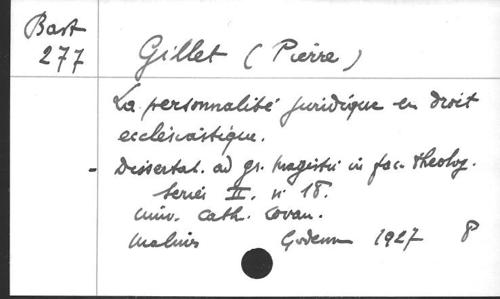 Bast
277
Gillet (Pierre)
La personnalité juridique en droit
ecclésiastique.
- Dissertat. ad gr. magistri in fac. theolog.
Series II. n° 18.
Univ. Cath. Lovan.
Malines Godenne 1927 8